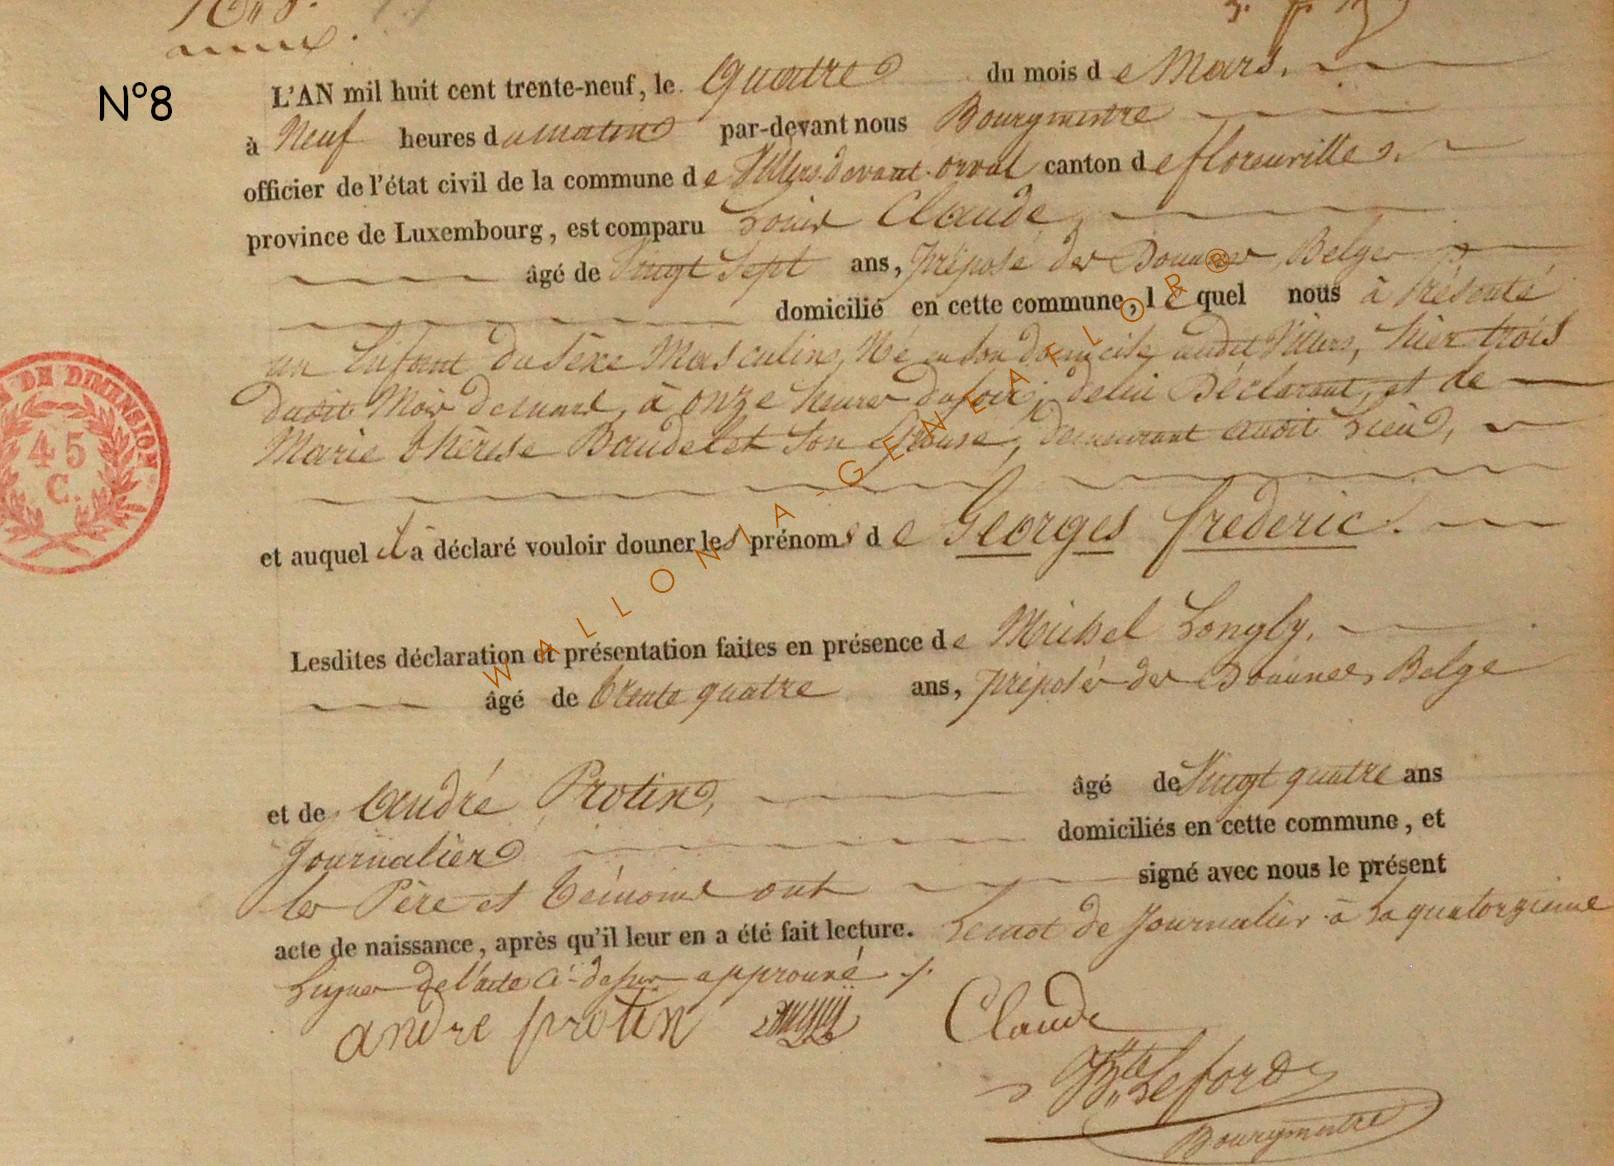 N°8
L'AN mil huit cent trente-neuf, le Quatre du mois de Mars.
à Neuf heures du matin par-devant nous Bourgmestre
officier de l'état civil de la commune de Villers devant orval canton de florenville
province de Luxembourg, est comparu Louis Claude
âgé de Vingt Sept ans, Préposé des Douanes, Belge
domicilié en cette commune, lequel nous à Présenté
un Enfant du Sèxe Masculin, Né en son domicile audit Villers, hier trois
dudit Mois de mars, à onze heures du soir, de lui Déclarant, et de
Marie thérèse Baudelet Son Epouse, demeurant audit Lieu,
et auquel il a déclaré vouloir donner les prénoms de Georges frederic.
Lesdites déclaration et présentation faites en présence de Michel Longly.
âgé de trente quatre ans, préposés des Douanes, Belge
et de André Protin, âgé de Vingt quatre ans
Journalier domiciliés en cette commune, et
les Père et témoins ont signé avec nous le présent
acte de naissance, après qu'il leur en a été fait lecture. Le mot de Journalier à la quatorzieme
Ligne de l'acte ci-dessus approuvé
andre protin Claude
Leford
Bourgmestre
DE DIMENSION
45
C.
WALLONIA-GENEALOR®